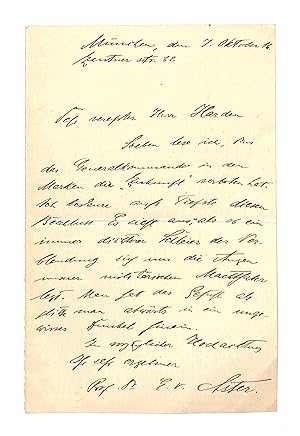 München, den 7. Oktober 16
Zentner str. 22
Sehr verehrter Herr Harden
Soeben lese ich, dass
das Generalkommando in den
Marken die „Zukunft" verboten hat.
Ich bedaure aufs Tiefste diesen
Beschluss. Es sieht aus, als ob ein
immer dichterer Schleier der Ver-
blendung sich um die Augen
unserer militärischen Machthaber
legt. Man hat das Gefühl als
glitte man abwärts in ein unge-
wisses Dunkel hinein.
In vorzüglicher Hochachtung
Ihr sehr ergebener
Prof. Dr. E. v. Aster.